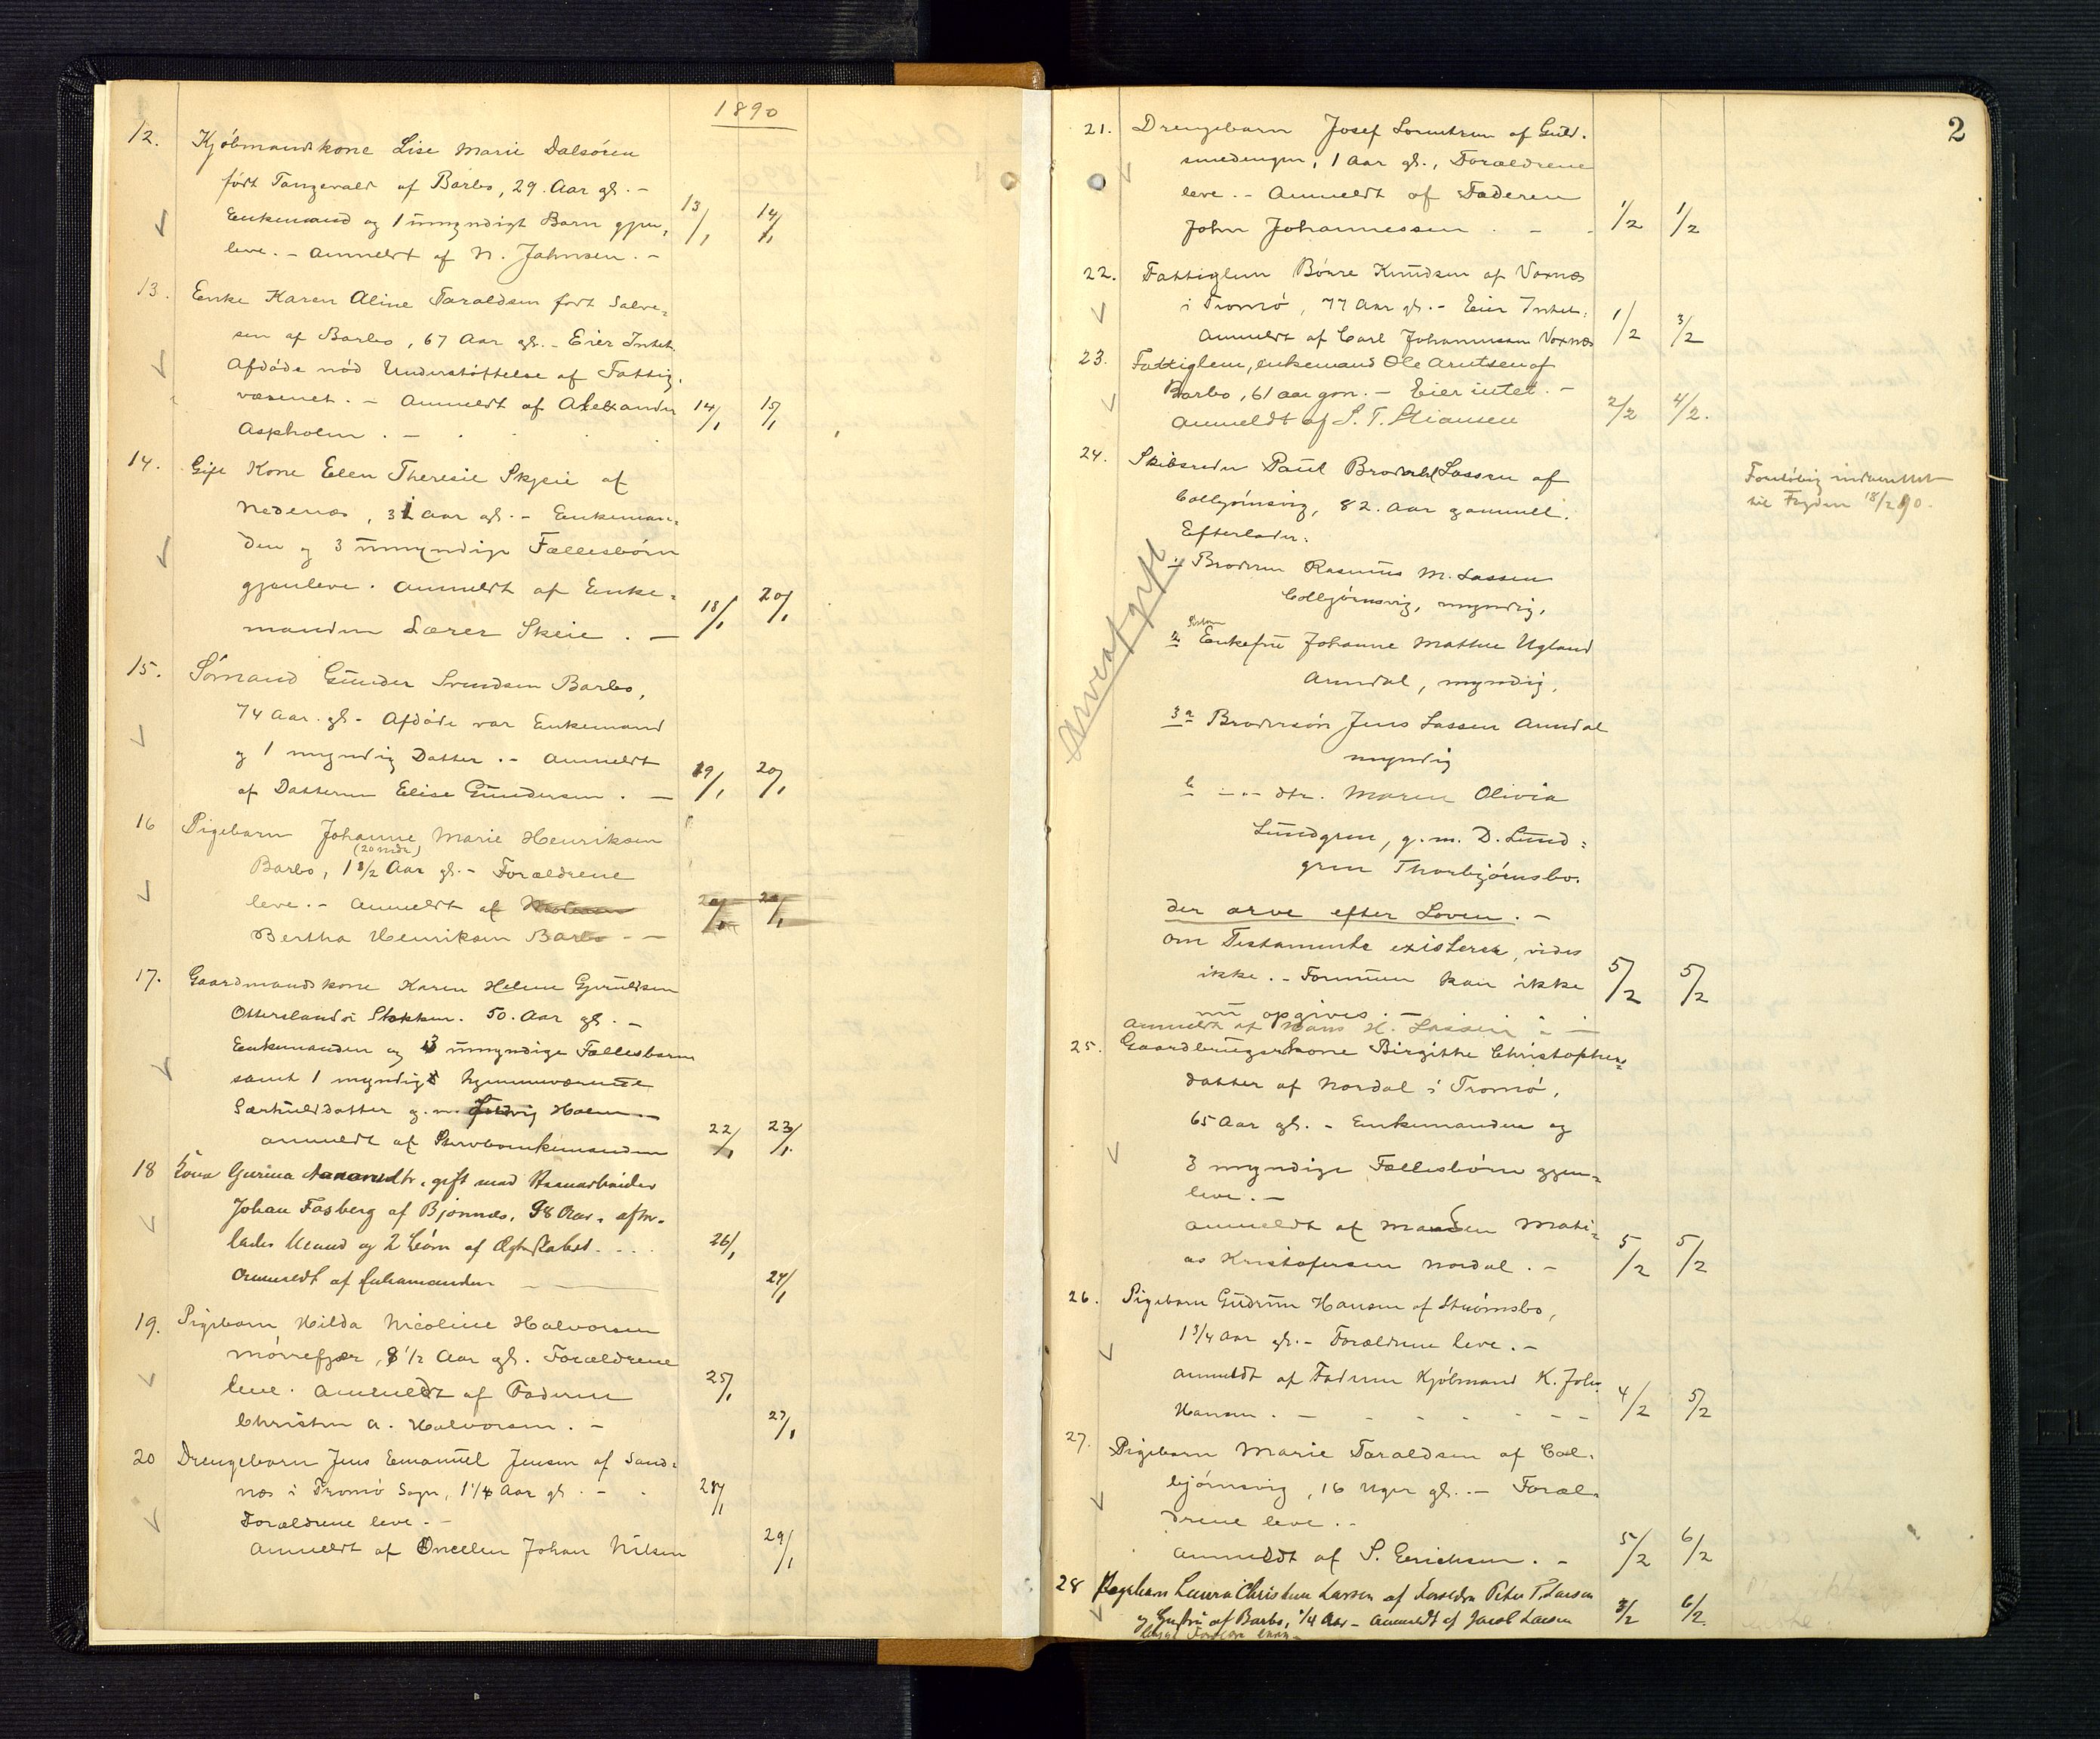 1890
12. Kjöbmandskone Lise Marie Dalsören
født Tangevald af Barbo, 29. Aar gl. -
Enkemand og 1 umyndigt Barn gjen-
leve. - Anmeldt af N. Jahnsen. - 13/1 14/1
13. Enke Karen Aline Taraldsen født Salve-
sen af Barbo, 67 Aar gl. - Eier Intet.
Afdøde nød Understøttelse af Fattig-
væsenet. - Anmeldt af Alexander 14/1 15/1
Aspholm. -
14. Gift Kone Elen Theresie Skjeie af
Nedenæs, 31 Aar gl. - Enkeman-
den og 3 umyndige Fællesbörn
gjenleve. Anmeldt af Enke- 18/1 20/1
manden Lærer Skeie. -
15. Sömand Gunder Svendsen Barbo,
74 Aar. gl. - Afdøde var Enkemand
og 1 myndig Datter. - Anmeldt
af Datteren Elise Gundersen. - 19/1 20/1
16 Pigebarn Johanne Marie Henriksen
(20 mdr)
Barbo, 1 8/12 Aar gl. - Forældrene
leve. - Anmeldt af
Bertha Henriksen Barbo - -
17. Gaardmandskone Karen Helene Gjeruldsen
Otterslands i Stokken. 50. Aar gl. -
Enkemanden og 3 umyndige Fællesbørn
samt 1 myndig hjemmeværende
Særkuldsdatter g. m. Holm. -
anmeldt af Stervboenkemanden 22/1 23/1
18 Kone Gurine gift med
Johan Fasberg af Bjønnes, 38 Aar, efter-
lader Mand og 2 børn af Ægteskabet. 26/1
Anmeldt af Enkemanden 27/1
19. Pigebarn Hilda Nicoline Halvorsen
Mørrefjær, 8 1/2 Aar gl. Forældrene
leve. Anmeldt af Faderen 25/1
Christen A. Halvorsen. - 27/1
20 Drengebarn Jens Emanuel Jensen af Sand-
næs i Tromø Sogn, 1 1/4 Aar gl. - 28/1
Forældrene leve. -
Anmeldt af Onkelen Johan Nilsen 29/1
2
21. Drengebarn Josef af Guld-
smedengen, 1 Aar gl., Forældrene
leve. - Anmeldt af Faderen
John Johannessen - 1/2 1/2
22. Fattiglem Börre Knudsen af Voxnæs
i Tromö, 77 Aar gl. - Eier Intet.
Anmeldt af Carl Johannesen Voxnæs 1/2 3/2
23. Fattiglem, enkemand Ole Arntsen af
Barbo, 61 aar gm. - Eier intet. -
anmeldt af S. T. Stiansen 2/2 4/2.
24. Skibsreder Paul Brodahl Lassen af
Colbjörnsvig, 82. Aar gammel.
Foreløbig indberettet
til Fogden 18/2 90.
Efterlader:
1. Broderen Rasmus M. Lassen
Colbjörnsvig, myndig,
Søsteren
2 Enkefru Johanne Mathee Ugland
Arendal, myndig,
3 a Brodersön Jens Lassen Arendal
myndig
b - " - dtr. Maren Olivia
Lundgren, g. m. D. Lund-
gren Thorbjörnsbo.
Arveafgift
der arve efter Loven. -
Om Testamente existerer, vides
ikke. - Formuen kan ikke 5/2 5/2
nu opgives. -
Anmeldt af Hans H. Lassen
25. Gaardbrugerkone Birgithe Christophers-
datter af Nordal i Tromö,
65 Aar gl. - Enkemanden og
3 myndige Fællesbörn gjen-
leve. -
anmeldt af Manden Mathi-
as Kristofersen Nordal. - 5/2 5/2
26. Pigebarn Gudrun Hansen af Strömsbo,
1 3/4 Aar gl. - Forældrene leve. -
anmeldt af Faderen Kjöbmand K. Joh.
Hansen. - 4/2 5/2
27. Pigebarn Marie Taraldsen af Col-
björnsvig, 16 Uger gl. - Foræl-
drene leve. -
anmeldt af S. Erichsen. - 5/2 6/2
28 Pigebarn Laura Christine Larsen af Forældre Peter T. Larsen
og Hustru af Barbo, 1/4 Aar - Anmeldt af Jacob Larsen 3/2 6/2.